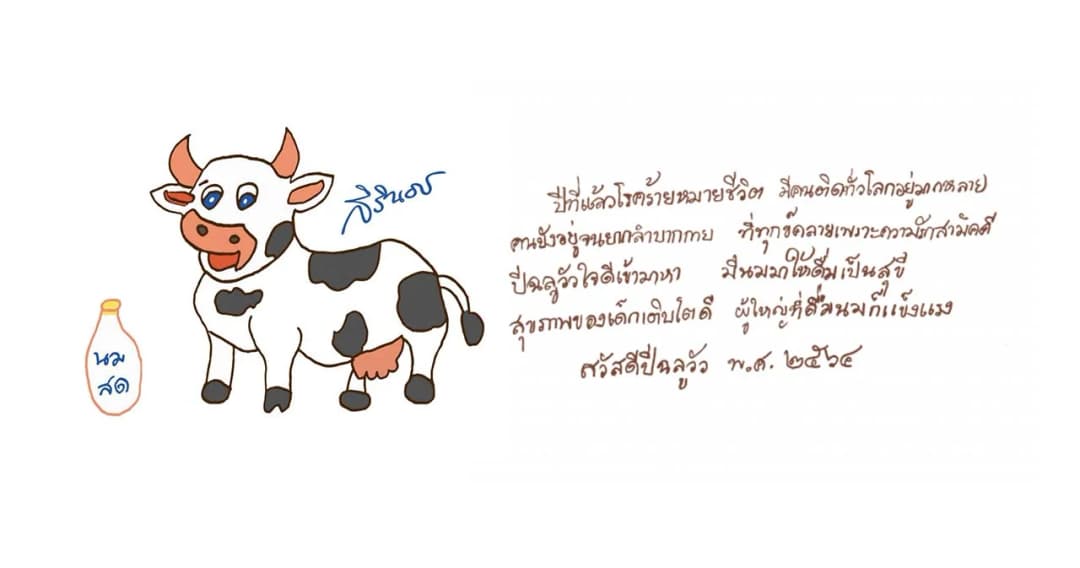 สิรินธร
ปีที่แล้วโรคร้ายหมายชีวิต มีคนติดทั่วโลกอยู่มากหลาย
คนยังอยู่จนยากลำบากกาย ที่ทุกข์คลายเพราะความรักสามัคคี
ปีฉลูวัวใจดีเข้ามาหา มีนมมาให้ดื่มเป็นสุขี
สุขภาพของเด็กเติบโตดี ผู้ใหญ่ที่ดื่มนมก็แข็งแรง
สวัสดีปีฉลูวัว พ.ศ. ๒๕๖๔
นม
สด